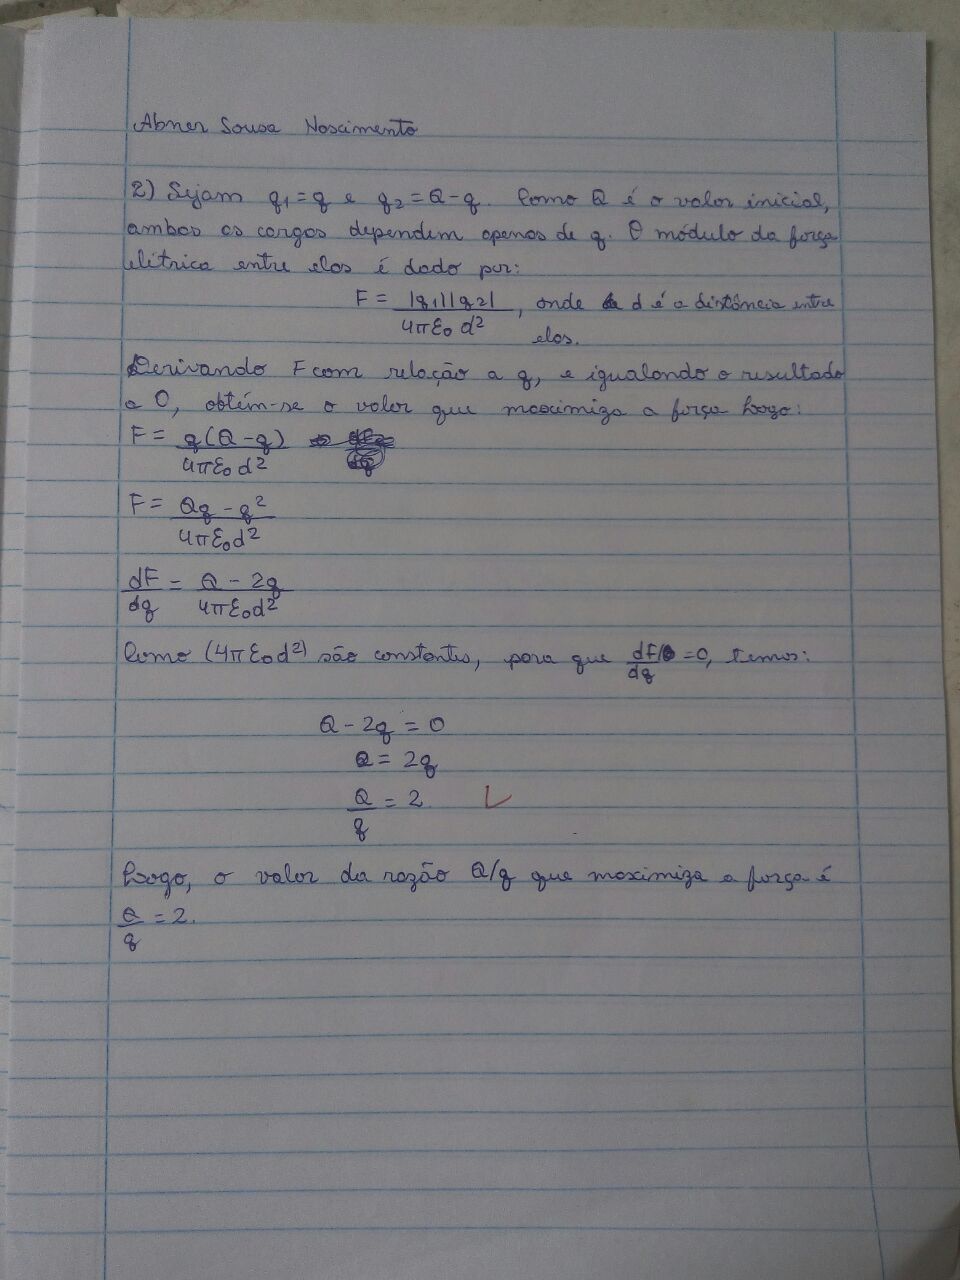 Abner Sousa Nascimento
2) Sejam q₁ = q e q₂ = Q - q. Como Q é o valor inicial,
ambas as cargas dependem apenas de q. O módulo da força
elétrica entre elas é dado por:
F = |q₁||q₂| / 4πε₀d², onde d é a distância entre
elas.
Derivando F com relação a q, e igualando o resultado
a 0, obtém-se o valor que maximiza a força. Logo:
F = q(Q - q) / 4πε₀d²
F = Qq - q² / 4πε₀d²
dF/dq = Q - 2q / 4πε₀d²
Como (4πε₀d²) são constantes, para que dF/dq = 0, temos:
Q - 2q = 0
Q = 2q
Q/q = 2
Logo, o valor da razão Q/q que maximiza a força é
Q/q = 2.